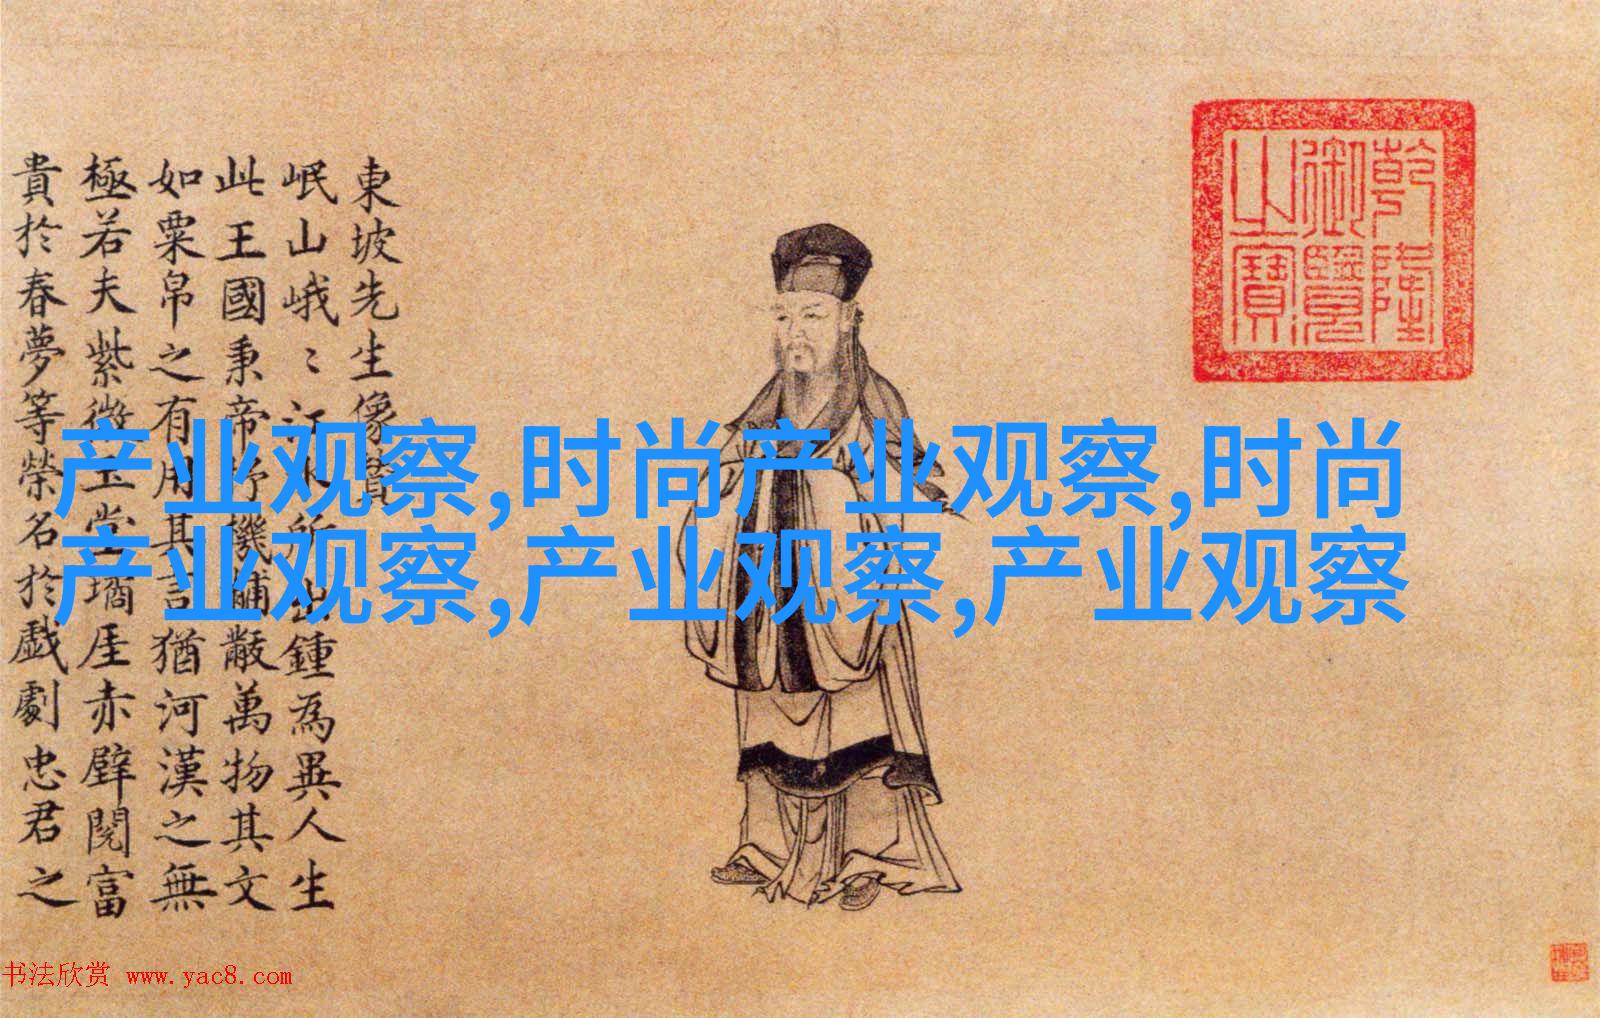 東坡先生像贊
岷山峨〻江水所出鍾為異人生
此王國秉帝杼機黼黻萬物其文
如粟帛之有用其言猶河漢之無
極若夫紫微玉堂瓊厓赤壁閱富
貴於春夢等榮名於戲劇忠君之
乾隆
御覽
之寶
产业观察,时尚产业观察,时尚
产业观察,产业观察,产业观察
书法欣赏 www.yac8.com